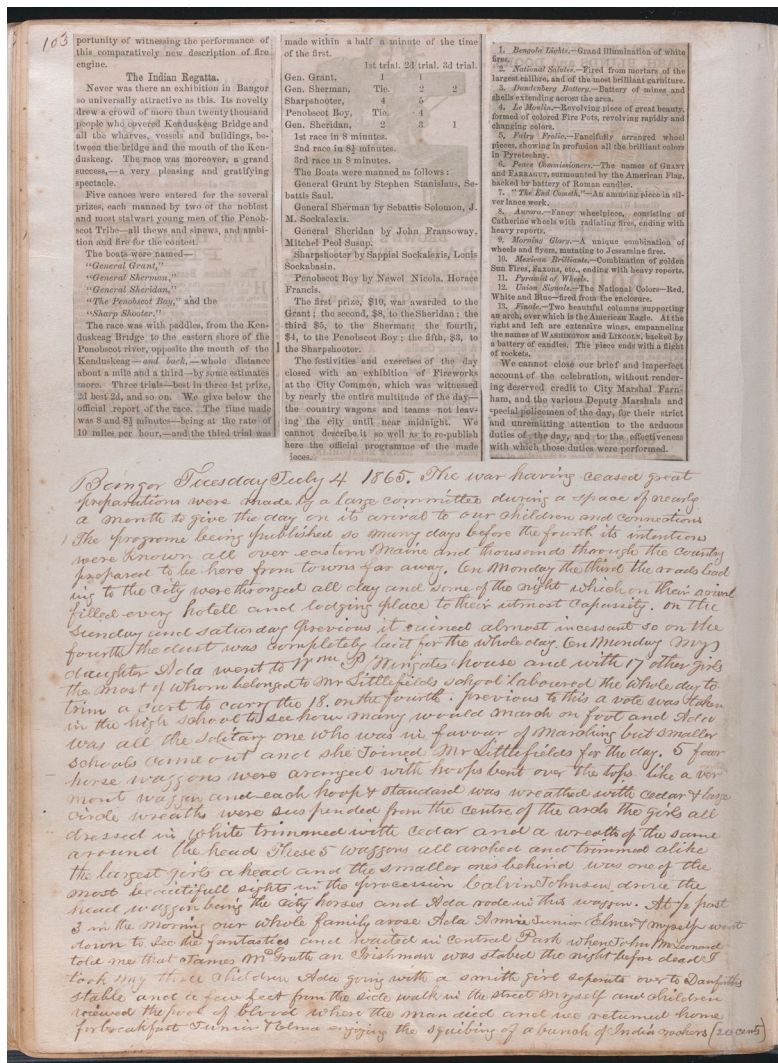 103
portunity of witnessing the performance of
this comparatively new description of fire
engine.
The Indian Regatta.
Never was there an exhibition in Bangor
so universally attractive as this. Its novelty
drew a crowd of more than twenty thousand
people who covered Kenduskeag Bridge and
all the wharves, vessels and buildings, be-
tween the bridge and the mouth of the Ken-
duskeag. The race was moreover, a grand
success,—a very pleasing and gratifying
spectacle.
Five canoes were entered for the several
prizes, each manned by two of the noblest
and most stalwart young men of the Penob-
scot Tribe—all thews and sinews, and ambi-
tion and fire for the contest.
The boats were named—
"General Grant,"
"General Sherman,"
"General Sheridan,"
"The Penobscot Bay," and the
"Sharp Shooter."
The race was with paddles, from the Ken-
duskeag Bridge to the eastern shore of the
Penobscot river, opposite the mouth of the
Kenduskeag—and back,—whole distance
about a mile and a third—by some estimates
more. Three trials—best in three 1st prize,
2d best 2d, and so on. We give below the
official report of the race. The time made
was 8 and 8½ minutes—being at the rate of
10 miles per hour,—and the third trial was
made within a half a minute of the time
of the first.
1st trial. 2d trial. 3d trial.
Gen. Grant, 1 1
Gen. Sherman, Tie. 2 2
Sharpshooter, 4 5
Penobscot Boy, Tie. 4
Gen. Sheridan, 2 3 1
1st race in 8 minutes.
2nd race in 8½ minutes.
3rd race in 8 minutes.
The Boats were manned as follows:
General Grant by Stephen Stanislaus, Se-
battis Saul.
General Sherman by Sebattis Solomon, J.
M. Sockalexis.
General Sheridan by John Fransoway,
Mitchel Peol Susup.
Sharpshooter by Sappiel Sockalexis, Louis
Sockabasin.
Penobscot Boy by Newel Nicola, Horace
Francis.
The first prize, $10, was awarded to the
Grant; the second, $8, to the Sheridan; the
third $5, to the Sherman; the fourth,
$4, to the Penobscot Boy; the fifth, $3, to
the Sharpshooter.
The festivities and exercises of the day
closed with an exhibition of Fireworks
at the City Common, which was witnessed
by nearly the entire multitude of the day—
the country wagons and teams not leav-
ing the city until near midnight. We
cannot describe it so well as to re-publish
here the official programme of the made
jeces.
1. Bengola Lights.—Grand illumination of white
fires.
2. National Salutes.—Fired from mortars of the
largest calibre, and of the most brilliant garniture.
3. Dandenburg Battery.—Battery of mines and
shells extending across the area.
4. Le Moulin.—Revolving piece of great beauty,
formed of colored Fire Pots, revolving rapidly and
changing colors.
5. Fairy Frolic.—Fancifully arranged wheel
pieces, showing in profusion all the brilliant colors
in Pyrotechny.
6. Peace Commissioners.—The names of GRANT
and FARRAGUT, surmounted by the American Flag,
backed by battery of Roman candles.
7. "The Last Ditch,"—An amusing piece in sil-
ver lance work.
8. Aurora.—Fancy wheelpiece, consisting of
Catherine wheels with radiating fires, ending with
heavy reports.
9. Morning Glory.—A unique combination of
wheels and flyers, mutating to Jessamine fires.
10. Mexican Brilliants.—Combination of golden
Sun Fires, Saxons, etc., ending with heavy reports.
11. Pyramid of Wheels.
12. Union Signals.—The National Colors—Red,
White and Blue—fired from the enclosure.
13. Finale.—Two beautiful columns supporting
an arch, over which is the American Eagle. At the
right and left are extensive wings, empanneling
the names of WASHINGTON and LINCOLN, backed by
a battery of candles. The piece ends with a flight
of rockets.
We cannot close our brief and imperfect
account of the celebration, without render-
ing deserved credit to City Marshal Farn-
ham, and the various Deputy Marshals and
special policemen of the day, for their strict
and unremitting attention to the arduous
duties of the day, and to the effectiveness
with which those duties were performed.
Bangor Tuesday July 4 1865. The war having ceased great
preparations were made by a large committee during a space of nearly
a month to give the day on its arival to our children and connections
The programe being published so many days before the fourth its intention
were known all over eastern Maine and thousands through the country
prepared to be here from towns far away. On Monday the third the roads lead
ing to the city were thronged all day and some of the night which on their arival
filled every hotell and lodging place to their utmost capassity. on the
Sunday and saturday previous it rained almost incessant so on the
fourth the dust was completely laid for the whole day. On Monday my
daughter Ada went to Wm P Wingates house and with 17 other girls
the most of whom belonged to Mr Littlefields school laboured the whole day to
trim a cart to carry the 18. on the fourth. previous to this a vote was taken
in the high school to see how many would march on foot and Ada
was all the solitary one who was in favour of Marching but smaller
schools came out and she joined Mr Littlefields for the day. 5 four
horse waggons were aranged with hoops bent over the tops like a ver
mont waggon and each hoop & standard was wreathed with cedar & large
circle wreaths were suspended from the centre of the arch the girls all
dressed in white trimmed with cedar and a wreath of the same
around the head These 5 waggons all arched and trimmed alike
the largest girls ahead and the smaller ones behind was one of the
most beautifull sights in the procession Calvin Johnson drove the
head waggon being the city horses and Ada rode in this waggon. At ½ past
3 in the morning our whole family arose Ada Annie Junior Elmer & myself went
down to see the fantastics and waited in Central Park where John
told me that James McGrath an Irishman was stabed the night before dead I
took my three children Ada going with a smith girl seperate over to Danforths
stable and a few feet from the side walk in the street myself and children
viewed the pool of blood where the man died and we returned home
for breakfast Junior & Elma enjoying the squibing of a bunch of India crackers (20 cents)